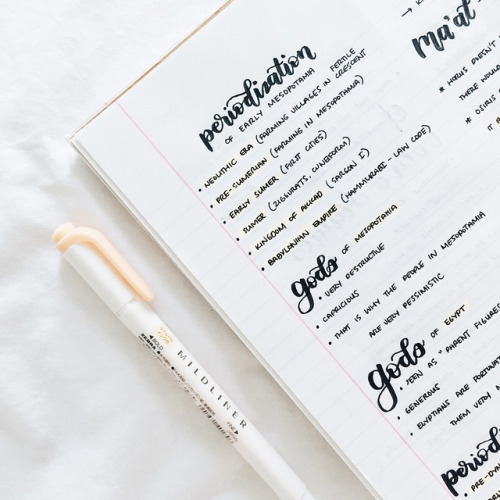 periodization
OF EARLY MESOPOTAMIA IN FERTILE CRESCENT
• NEOLITHIC ERA (FARMING VILLAGES IN
• PRE-SUMERIAN (FARMING IN MESOPOTAMIA)
• EARLY SUMER (FIRST CITIES)
• SUMER (ZIGGURATS, CUNEIFORM)
• KINGDOM OF AKKAD (SARGON I)
• BABYLONIAN EMPIRE (HAMMURABI - LAW CODE)
gods OF MESOPOTAMIA
• VERY DESTRUCTIVE
• CAPRICIOUS
• THAT IS WHY THE PEOPLE IN MESOPOTAMIA
ARE VERY PESSIMISTIC
gods OF EGYPT
• SEEN AS "PARENT FIGURES
• GENEROUS
• EGYPTIANS ARE
THEM VERY
period
• PRE-DYN
ma'at
* HORUS DOESN'T
THERE WOULD
* OSIRIS
MILDLINER